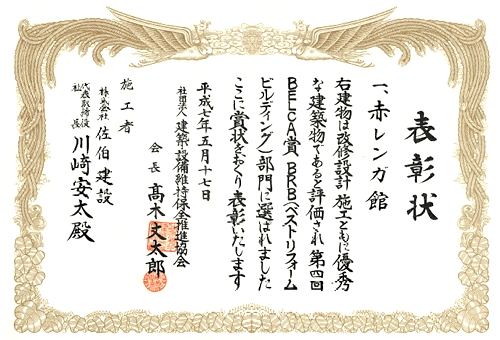 表彰状
一、赤レンガ館
右建物は改修設計 施工ともに優秀
な建築物であると評価され 第四回
BELCA賞(BRB(ベストリフォーム
ビルディング)部門に選ばれました
ここに賞状をおくり表彰いたします
平成七年五月十七日
社団法人 建築・設備維持保全推進協会
会長 髙木丈太郎
施工者
株式会社 佐伯建設
代表取締役社長 川崎安太殿